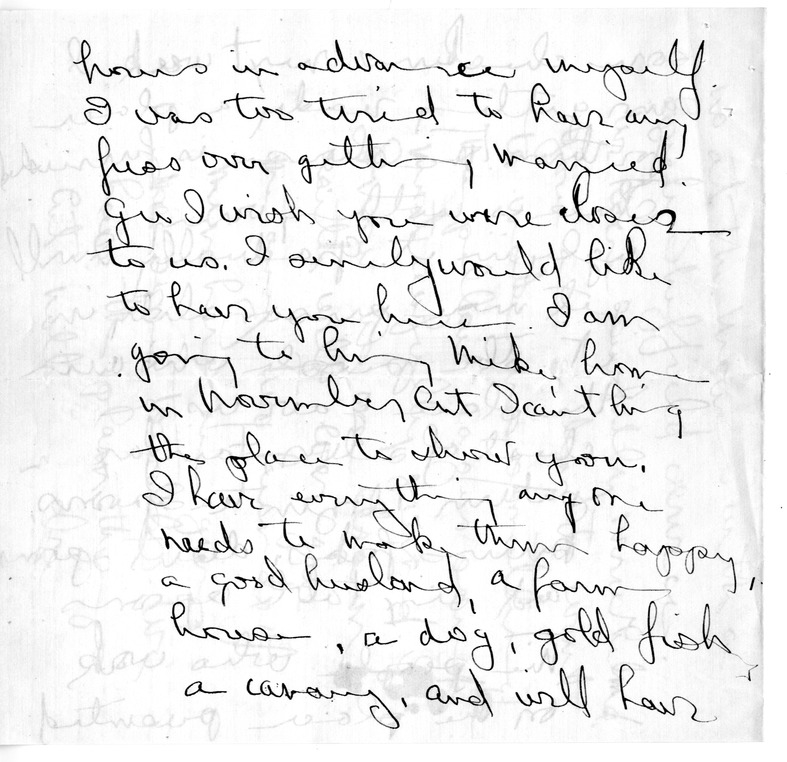 hours in advance myself.
I was too tired to have any
fuss over getting married.
Gee I wish you were closer
to us. I surely would like
to have you here. I am
going to bring Mike home
in November but I can't bring
the place to show you.
I have everything anyone
needs to make them happy,
a good husband, a farm
house, a dog, gold fish
a canary, and will have